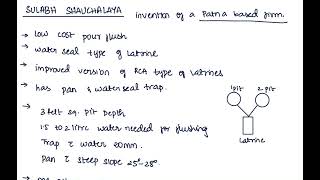 SULABH SHAUCHALAYA invention of a Patna based firm.
→ low cost pour flush
→ water seal type of latrine
→ improved version of RCA type of latrines
→ has pan & water seal trap.
→ 3 feet sq. pit depth
1.5 to 2 litre water needed for flushing
Trap c̄ water 20mm.
Pan c̄ steep slope 25°-28°.
1 pit 2 pit
latrine